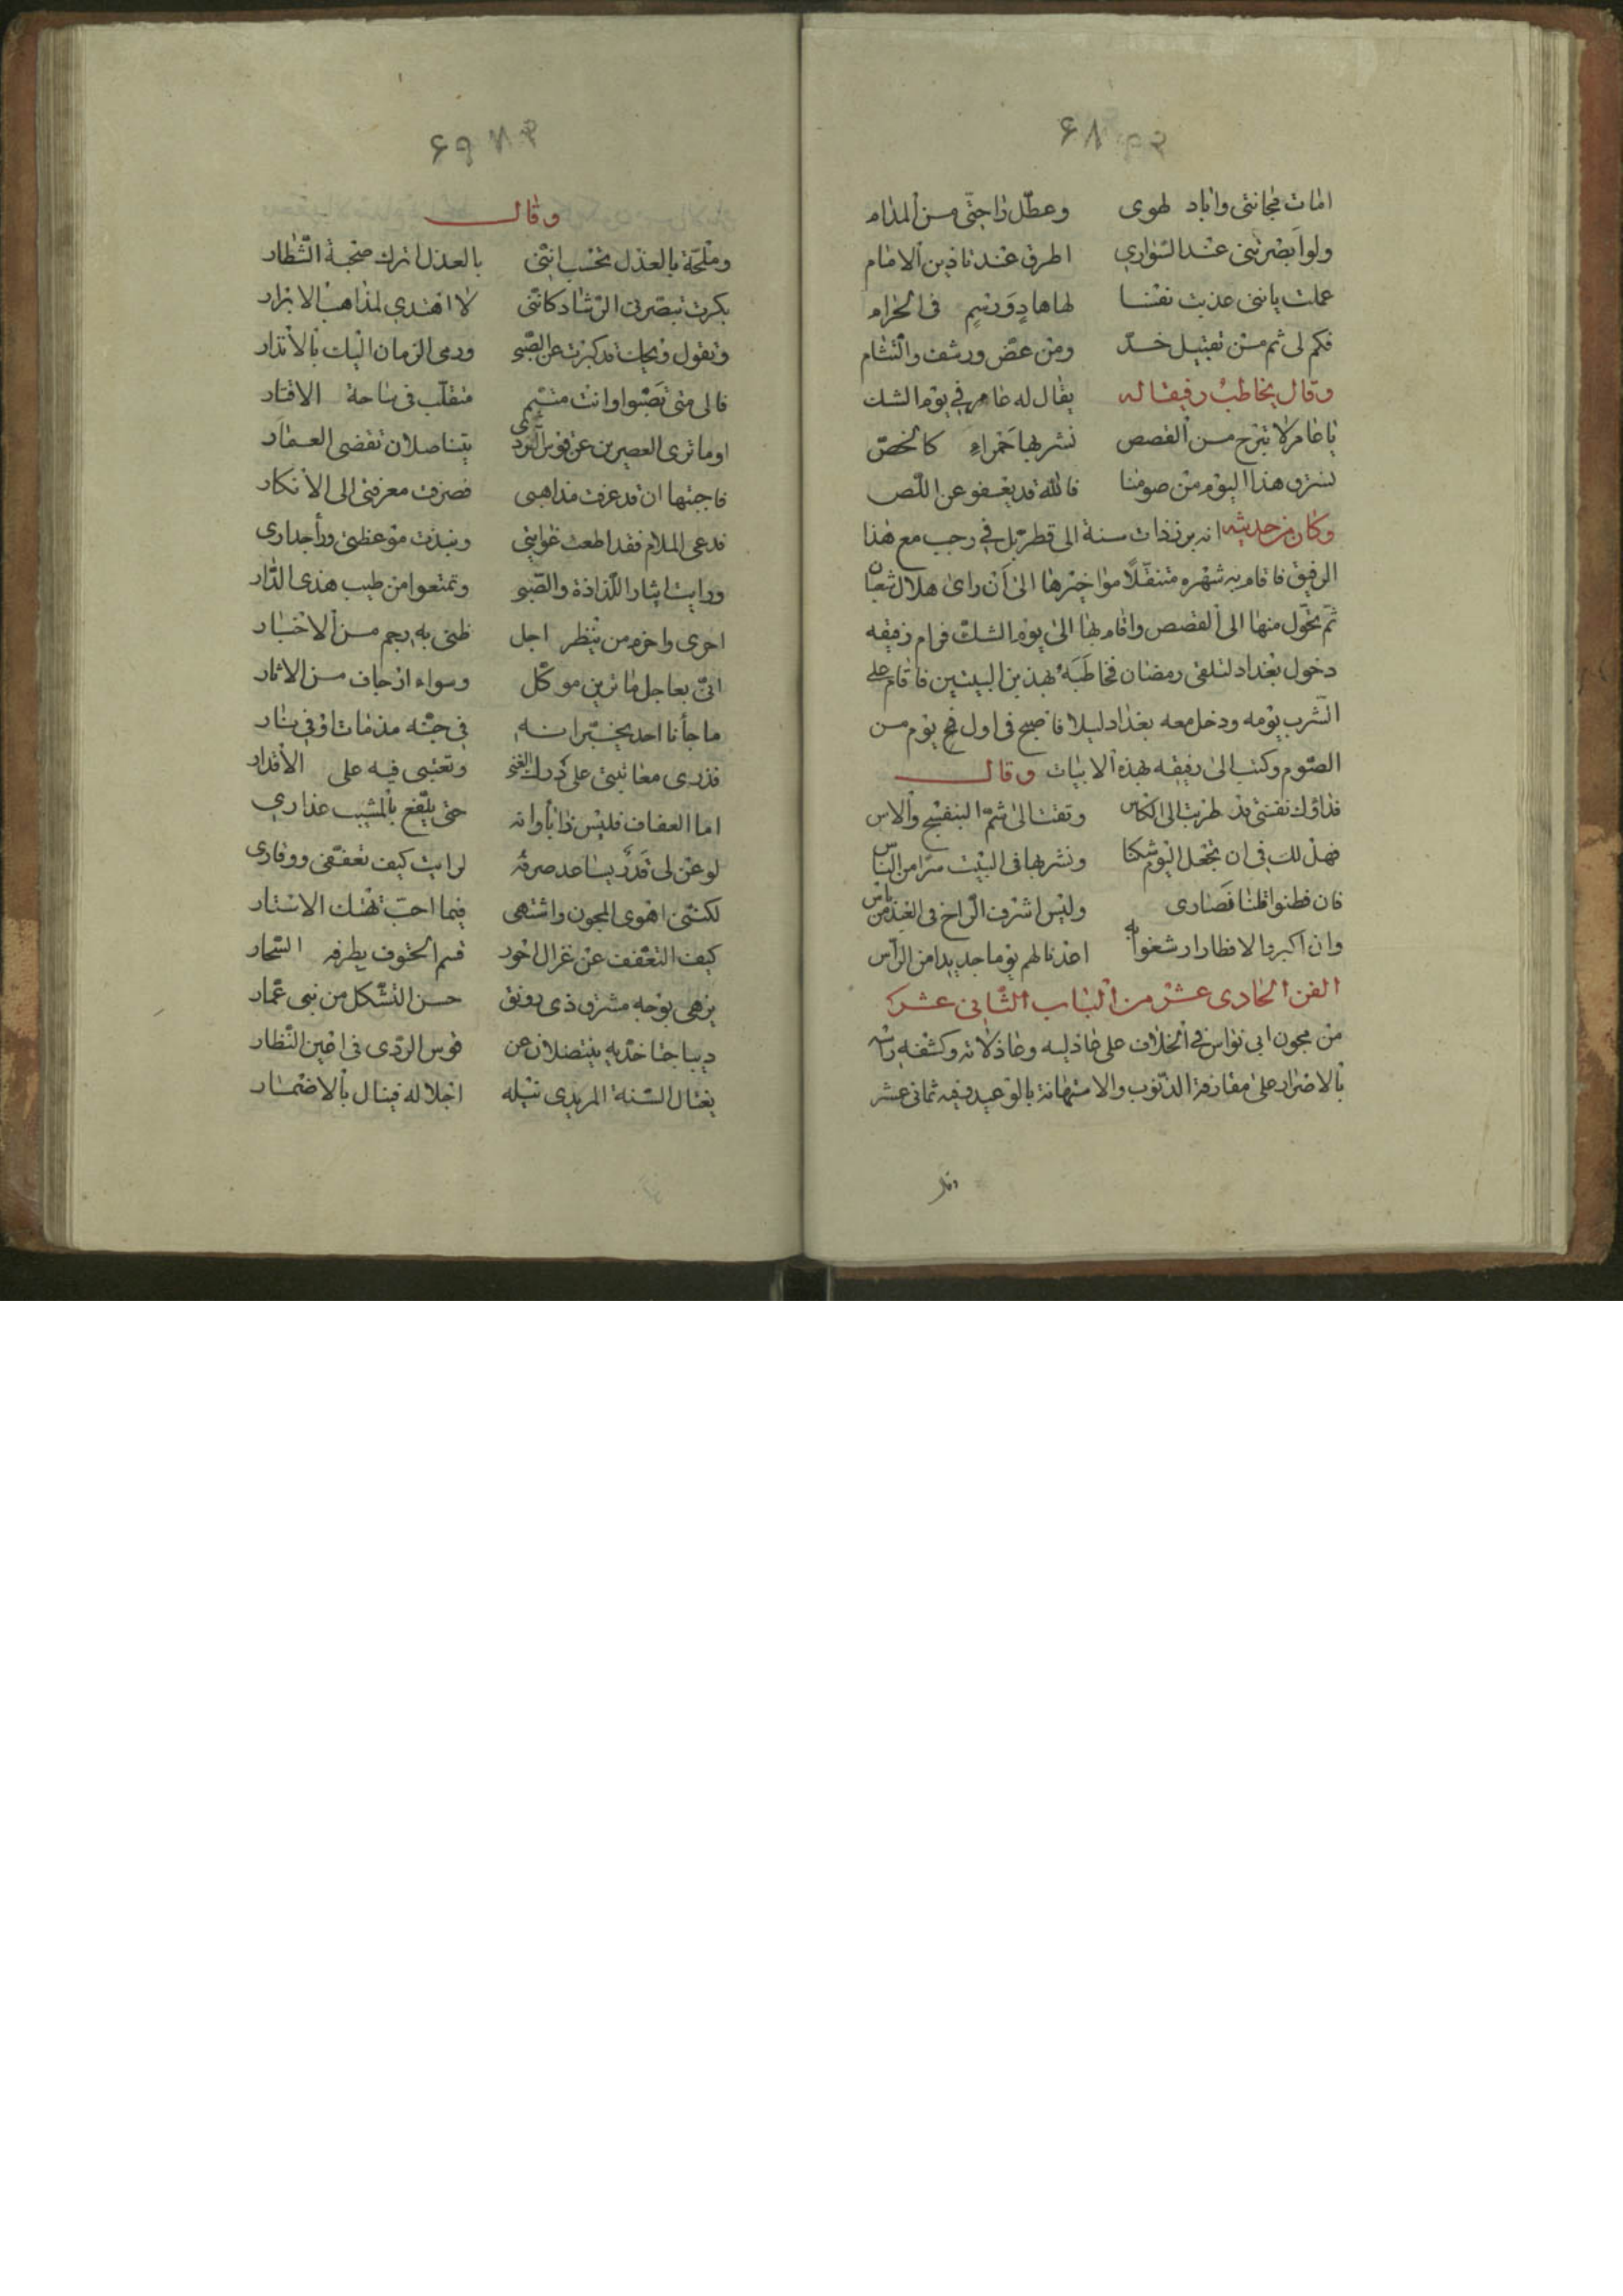 ۶۸
امات مجانتى واباد لهوى وعطل راحتى من المدام
ولو ابصرتنى عند السوارى اطرق عند تاذين الامام
علمت باننى عذبت نفسا لها هاد ورسيم فى الحرام
فكم لى ثم من تقبيل خد ومن عض ورشف والتثام
وقال يخاطب رفيقا له يقال له عامر فى يوم الشك
يا عامر لا تبرح من القفص نشربها حمراء كالخص
نسرق هذا اليوم من صومنا فالله قد يعفو عن اللص
وكان من حديثه انه برز ذات سنة الى قطربل فى رجب مع هذا
الرفيق فاقام به شهره متنقلا مواخيرها الى ان راى هلال شعبان
ثم تحول منها الى القفص واقام بها الى يوم الشك فرام رفيقه
دخول بغداد لتلقى رمضان فخاطبه بهذين البيتين فاقام على
الشرب يومه ودخل معه بغداد ليلا فاصبح فى اول يوم من
الصوم وكتب الى رفيقه بهذه الابيات وقال
فداؤك نفسى قد طربت الى الكاس وتقت الى شم البنفسج والاس
فهل لك فى ان تجعل اليوم شكنا ونشربها فى البيت سرا من الناس
فان فطنوا قلنا نصارى وليس اشرف الراح فى الغد من باس
وان اكبروا الافطار او شغبوا به اعدنا لهم يوما جديدا من الراس
الفن الحادى عشر من الباب الثانى عشر
من مجون ابى نواس فى الخلاف على عاذليه وعاذلاته وكشفه راسه
بالاصرار على مقارفة الذنوب والاستهانة بالوعيد وفيه ثمانى عشر
۶۹
وقال
وملحة بالعذل تحسب اننى بالعذل اترك صحبة الشطار
بكرت تبصرنى الرشاد كاننى لا اهتدى لمذاهب الابرار
وتقول ويحك قد كبرت عن الصبو ورمى الزمان اليك بالانذار
فالى متى تصبوا وانت متيم متقلب فى ساحة الاقتار
اوما ترى العصرين عن قوس الردى يتناضلان تقضى العمار
فاجبتها ان قد عرفت مذاهبى فصرفت معرفتى الى الانكار
فدعى الملام فقد اطعت غوايتى ونبذت موعظتى وراجدارى
ورايت ايثار اللذاذة والصبو وتمتعوا من طيب هذى الدار
احرى واحزم من تنظر اجل ظنى به رجم من الاخبار
انى بعاجل ما ترين موكل وسواه ارجاف من الاثار
ما جأنا احد يخبر انه فى جنة مذ مات او فى نار
فذرى معاتبتى على ترك الغنى وتعتبى فيه على الاقدار
اما العفاف فليس ذا بأوانه حتى يلفع بالمشيب عذارى
لو عن لى قدر يساعد صرفه لرايت كيف تعففى ووقارى
لكننى اهوى المجون واشتهى فيما احب تهتك الاستار
كيف التعفف عن غزال احور قسم الحتوف بطرفه السحار
يزهى بوجه مشرق ذى رونق حسن التشكل من بنى عمار
ديباجتا خديه ينتضلان عن قوس الردى فى اعين النظار
يغتال السنة المريدى نيله اجلا له فينال بالاضمار